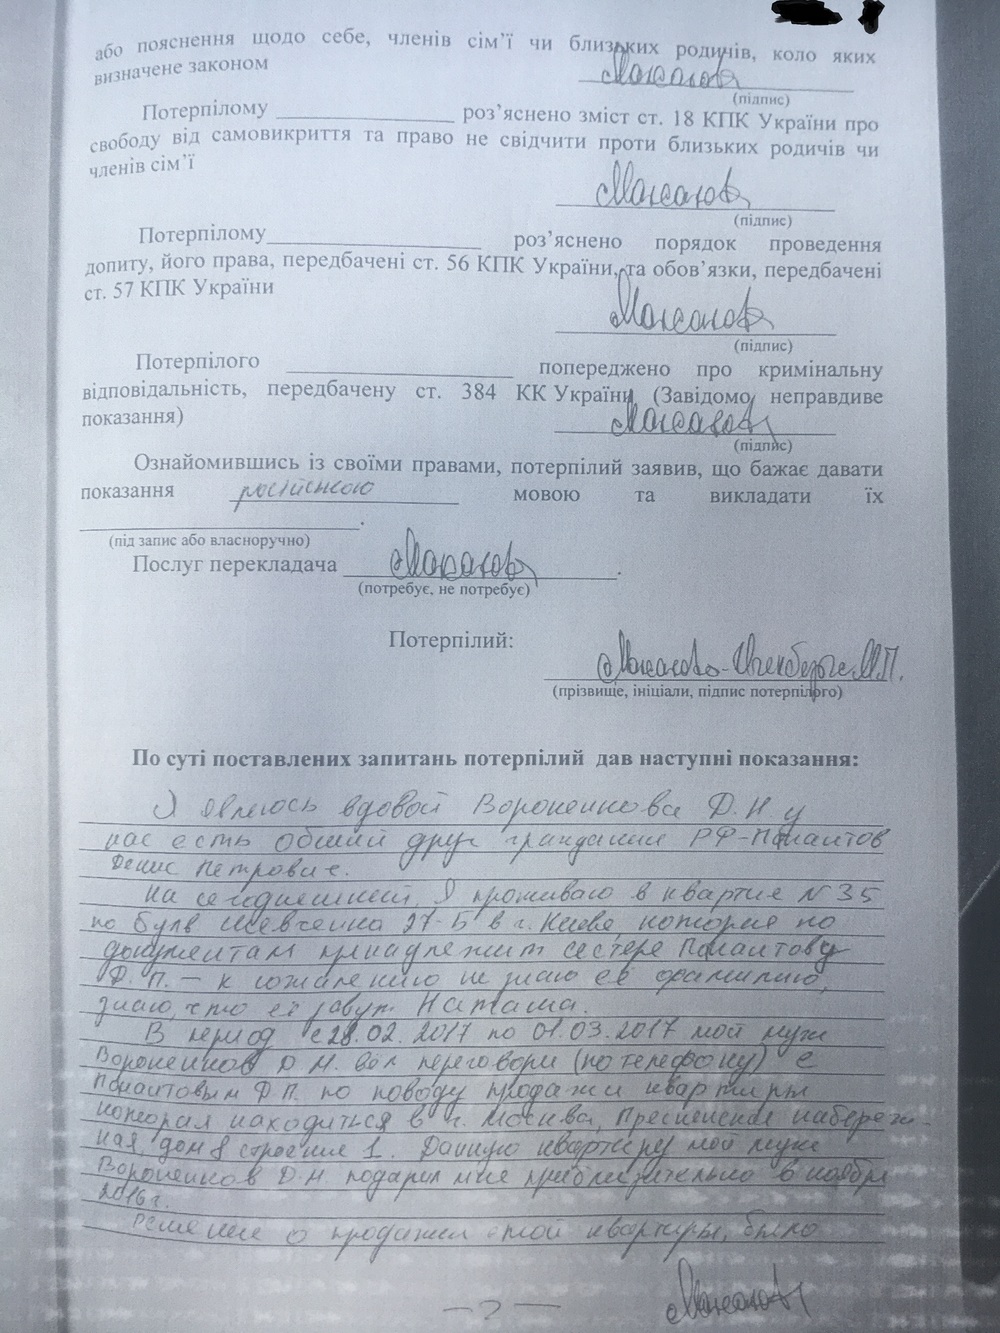 або пояснення щодо себе, членів сім’ї чи близьких родичів, коло яких
визначене законом
(підпис)
Потерпілому ____________ роз’яснено зміст ст. 18 КПК України про
свободу від самовикриття та право не свідчити проти близьких родичів чи
членів сім’ї
(підпис)
Потерпілому____________ роз’яснено порядок проведення
допиту, його права, передбачені ст. 56 КПК України, та обов’язки, передбачені
ст. 57 КПК України
(підпис)
Потерпілого ____________ попереджено про кримінальну
відповідальність, передбачену ст. 384 КК України (Завідомо неправдиве
показання)
(підпис)
Ознайомившись із своїми правами, потерпілий заявив, що бажає давати
показання російською мовою та викладати їх
____________.
(під запис або власноручно)
Послуг перекладача
(потребує, не потребує)
Потерпілий:
(прізвище, ініціали, підпис потерпілого)
По суті поставлених запитань потерпілий дав наступні показання:
Я являюсь вдовой Вороненкова Д.Н у
нас есть общий друг гражданин РФ-
Денис Петрович.
На Я проживаю в квартире N 35
по булв Шевченка 27-Б в г. Киеве, которая по
документам принадлежит сестре
Д.П. – к сожалению не знаю её фамилию,
знаю, что её зовут Наташа.
В период с 28.02.2017 по 01.03.2017 мой муж
Вороненков Д.Н. вол переговори (по телефону) с
Д.П. по поводу продажи квартиры
которая находиться в г. Москва, Пресненская набереж-
ная, дом 8 строение 1. Данную квартиру мой муж
Вороненков Д.Н. подарил мне приблизительно в ноябре
2016 г.
Решение о продажи этой квартиры, было
— 2 —